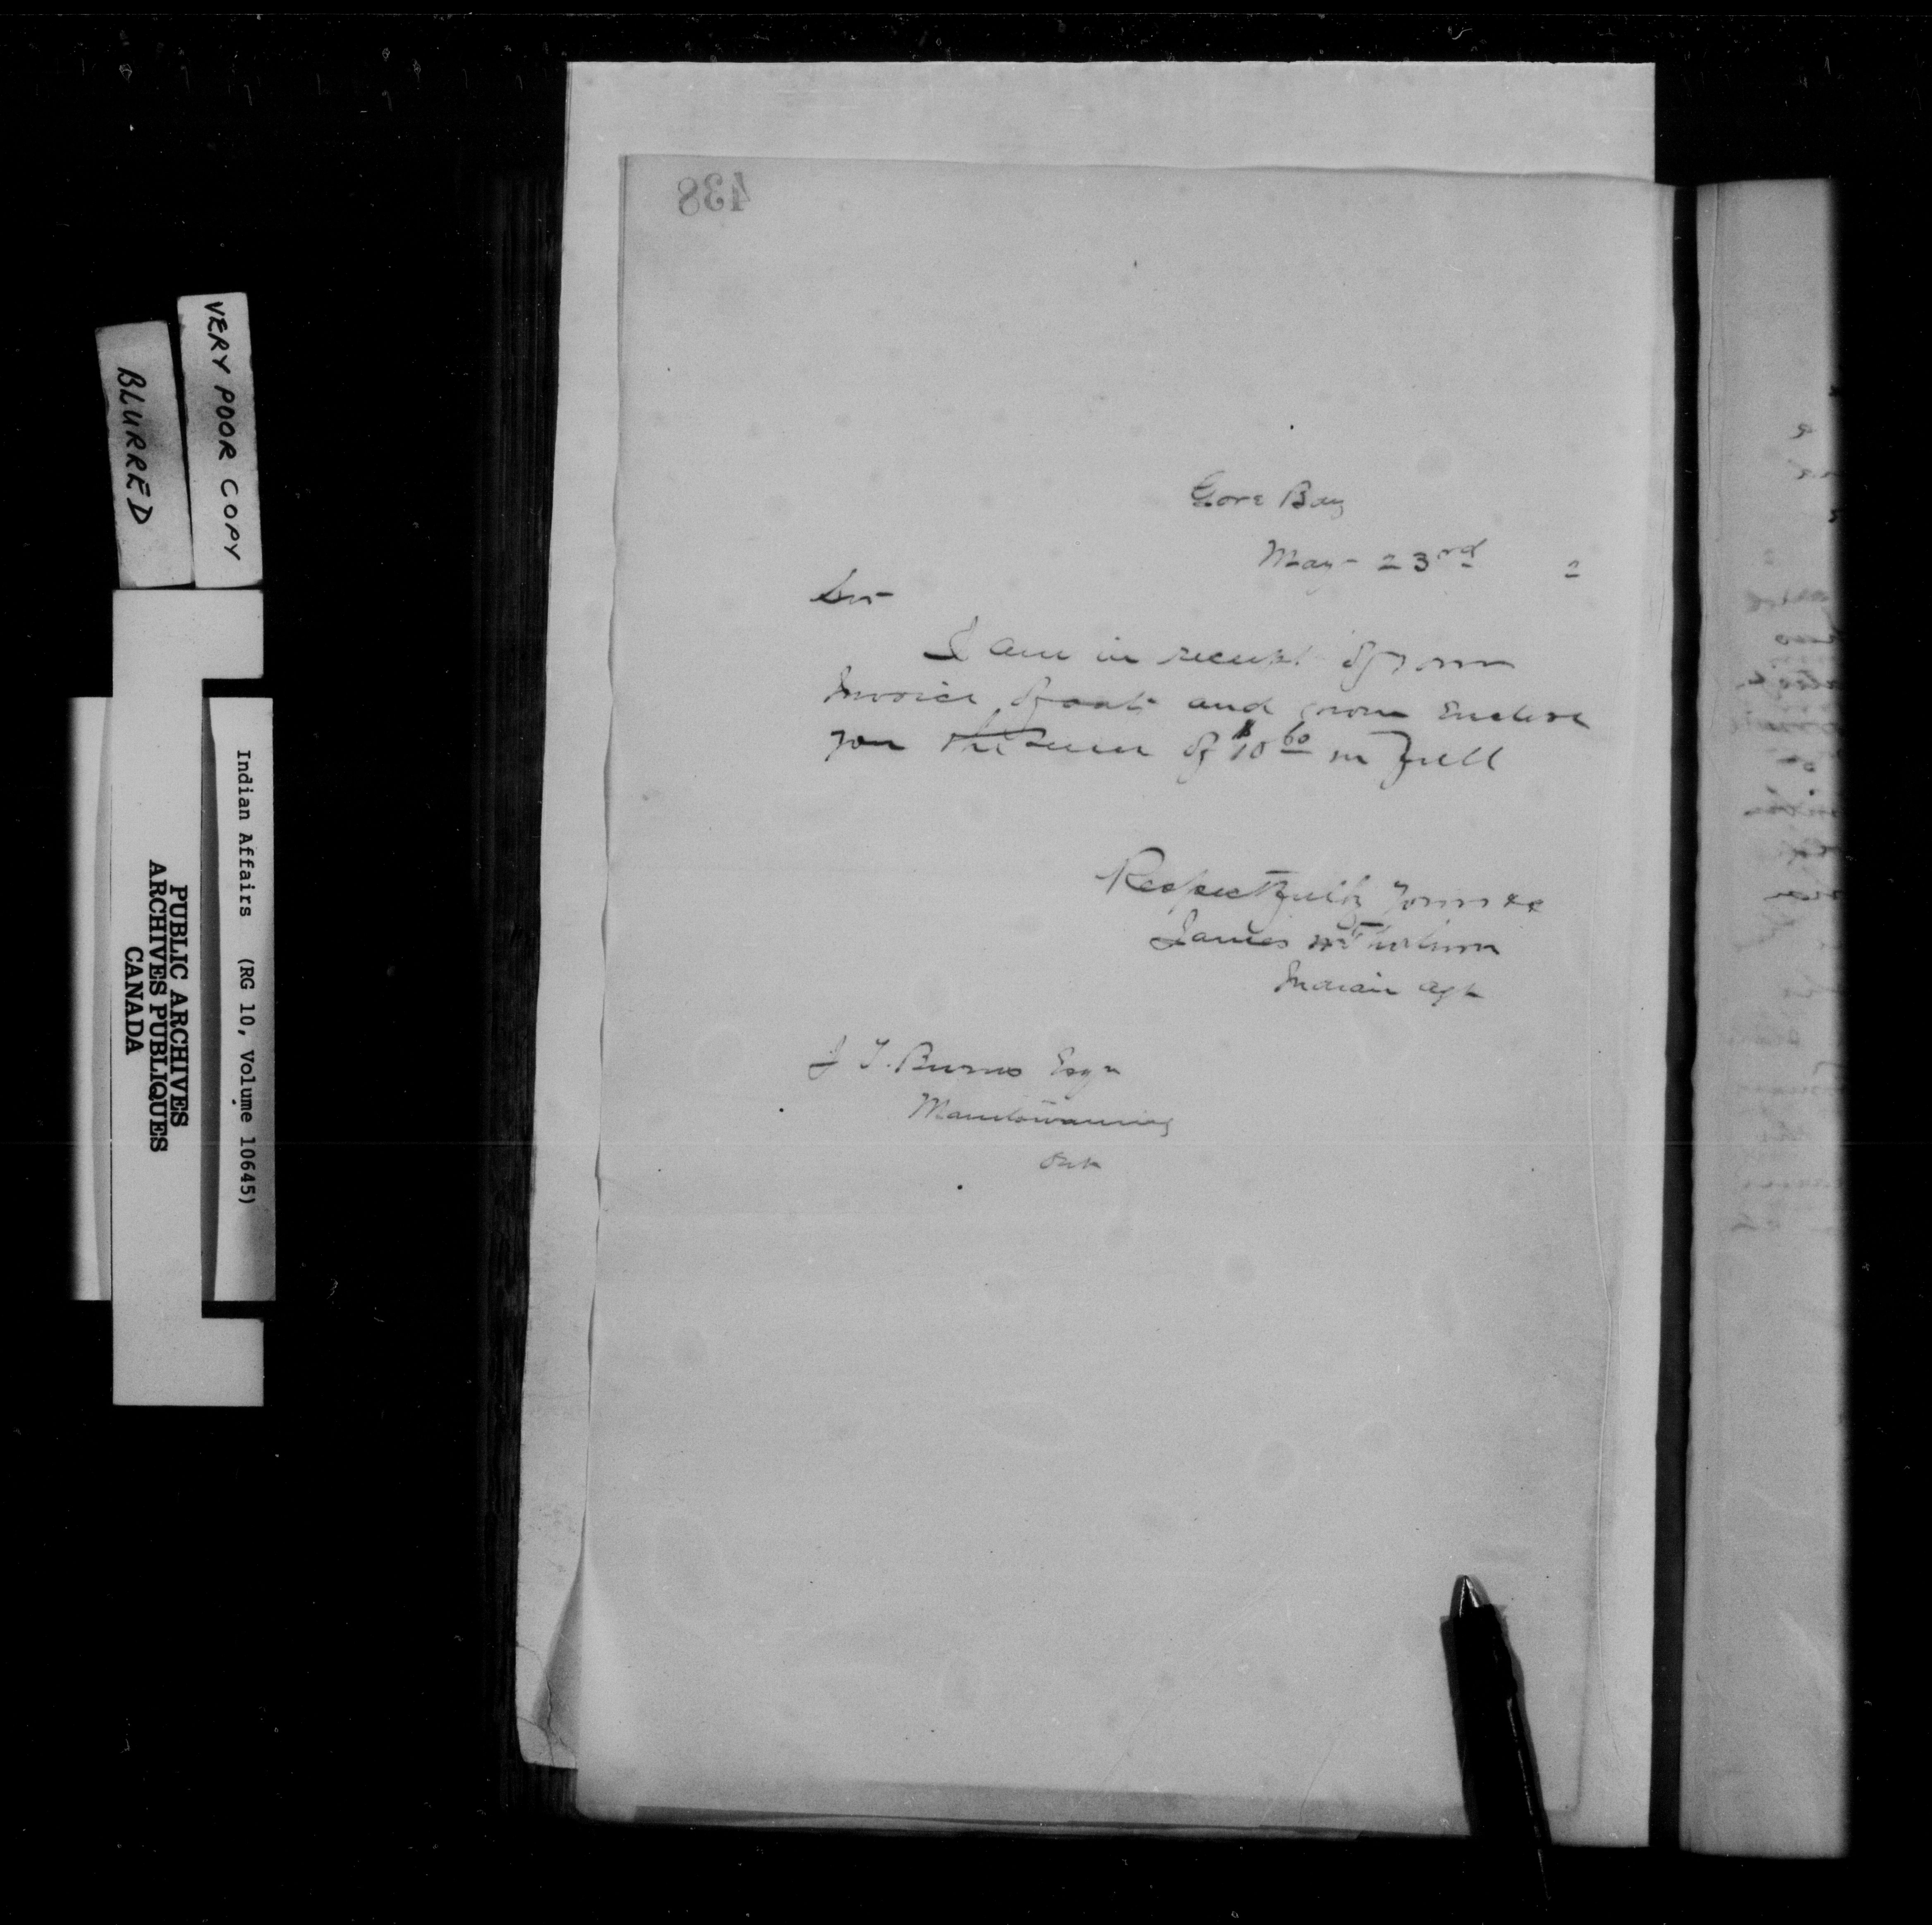 438
Gore Bay
May - 23rd 2
Sir
I am in receipt of your
Invoice of oats and now Enclose
you the sum of $10 60 in full
Respectfully Yours &c
James
Indian Agt
J T. Burns Esqr
Manitowaning
Ont
VERY POOR COPY
BLURRED
Indian Affairs (RG 10, Volume 10645)
PUBLIC ARCHIVES
ARCHIVES PUBLIQUES
CANADA